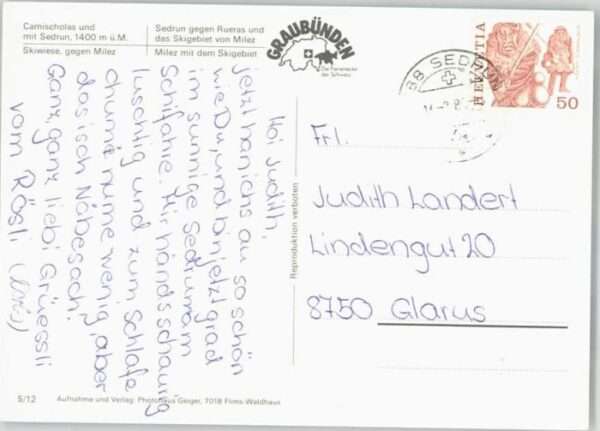 Camischolas und
mit Sedrun, 1400 m ü.M.
Skiwiese, gegen Milez
Sedrun gegen Rueras und
das Skigebiet von Milez
Milez mit dem Skigebiet
GRAUBÜNDEN
Die Ferienecke
der Schweiz
SEDRUN
HELVETIA
50
Hoi Judith,
jetzt han ich s au so schön
wie Du, und bin jetzt grad
im sunnige Sedrun am
Schifahre. Mir händs schaurig
luschtig und zum Schlafe
chume nume wenig, aber
das isch Näbesach!
Ganz, ganz liebi Grüessli
vom Rösli
Reproduktion verboten
Frl.
Judith Landert
Lindengut 20
8750 Glarus
5/12
Aufnahme und Verlag: Photohaus Geiger, 7018 Flims-Waldhaus